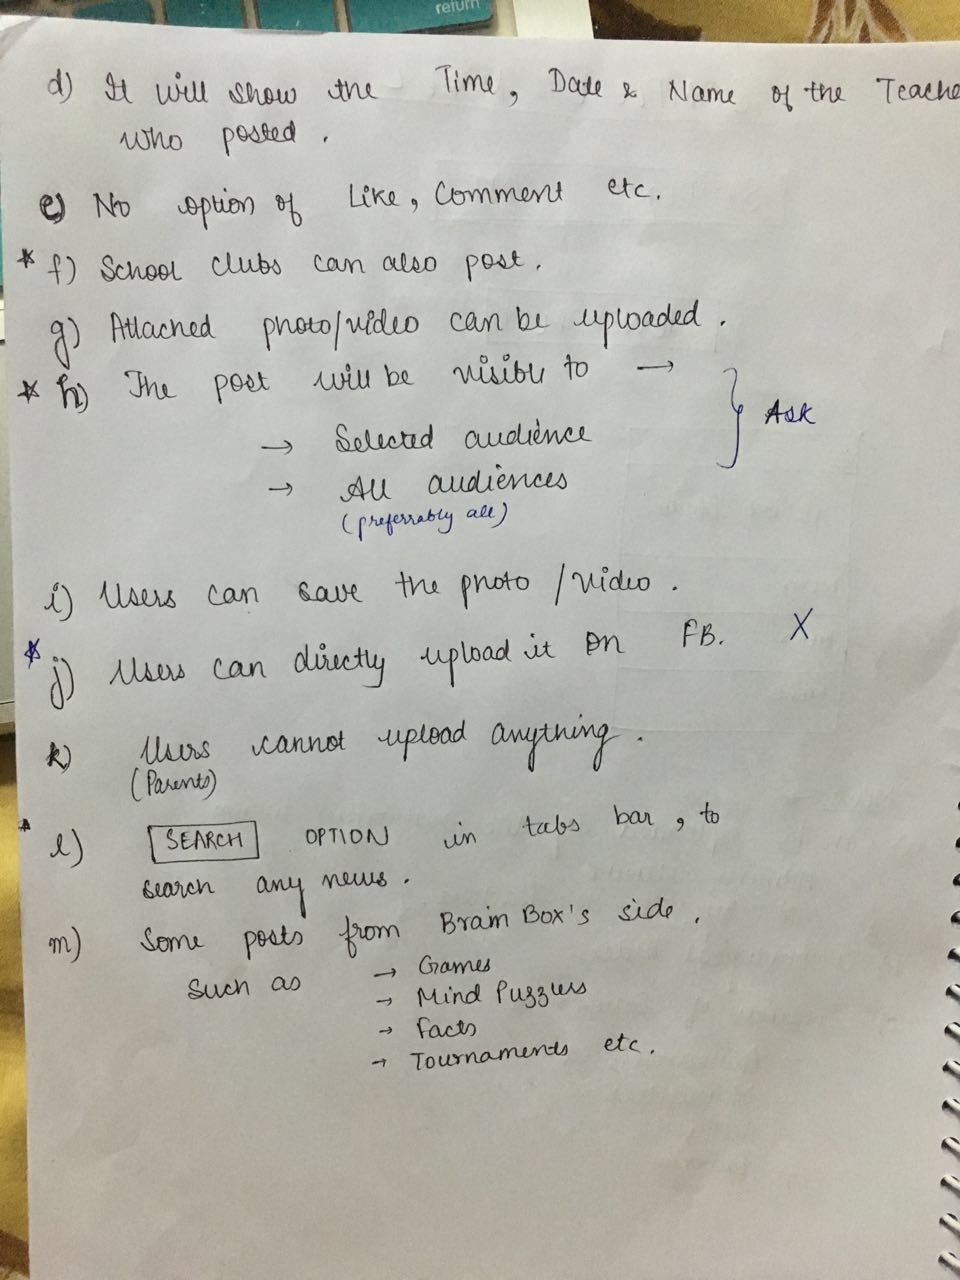 return
d) It will show the Time, Date & Name of the Teache
who posted.
e) No option of Like, Comment etc.
* f) School clubs can also post.
g) Attached photo/video can be uploaded.
* h) The post will be visible to →
→ Selected audience
} Ask
→ All audiences
(preferrably all)
i) Users can save the photo/video.
* j) Users can directly upload it on FB. X
k) Users cannot upload anything.
(Parents)
* l) SEARCH OPTION in tabs bar, to
search any news.
m) Some posts from Brain Box's side,
such as → Games
→ Mind Puzzles
→ Facts
→ Tournaments etc.